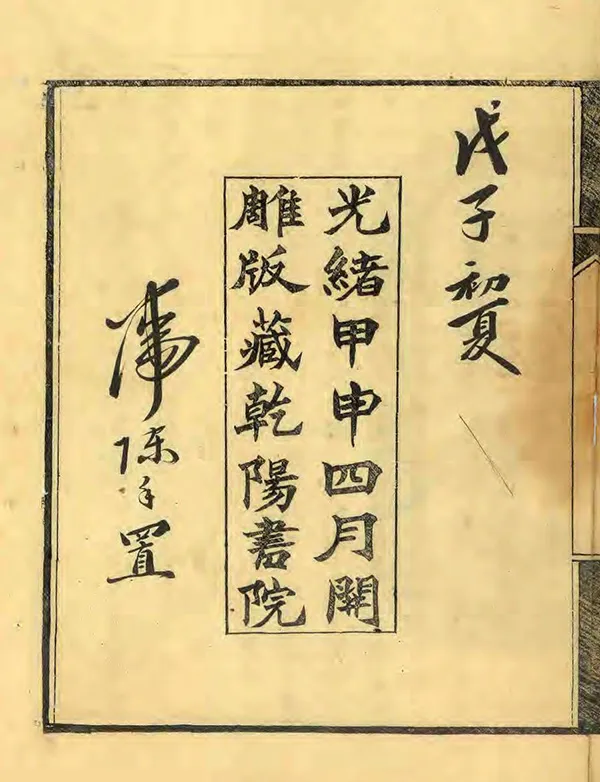 戊子初夏
光緒甲申四月開
雕版藏乾陽書院
陳手置